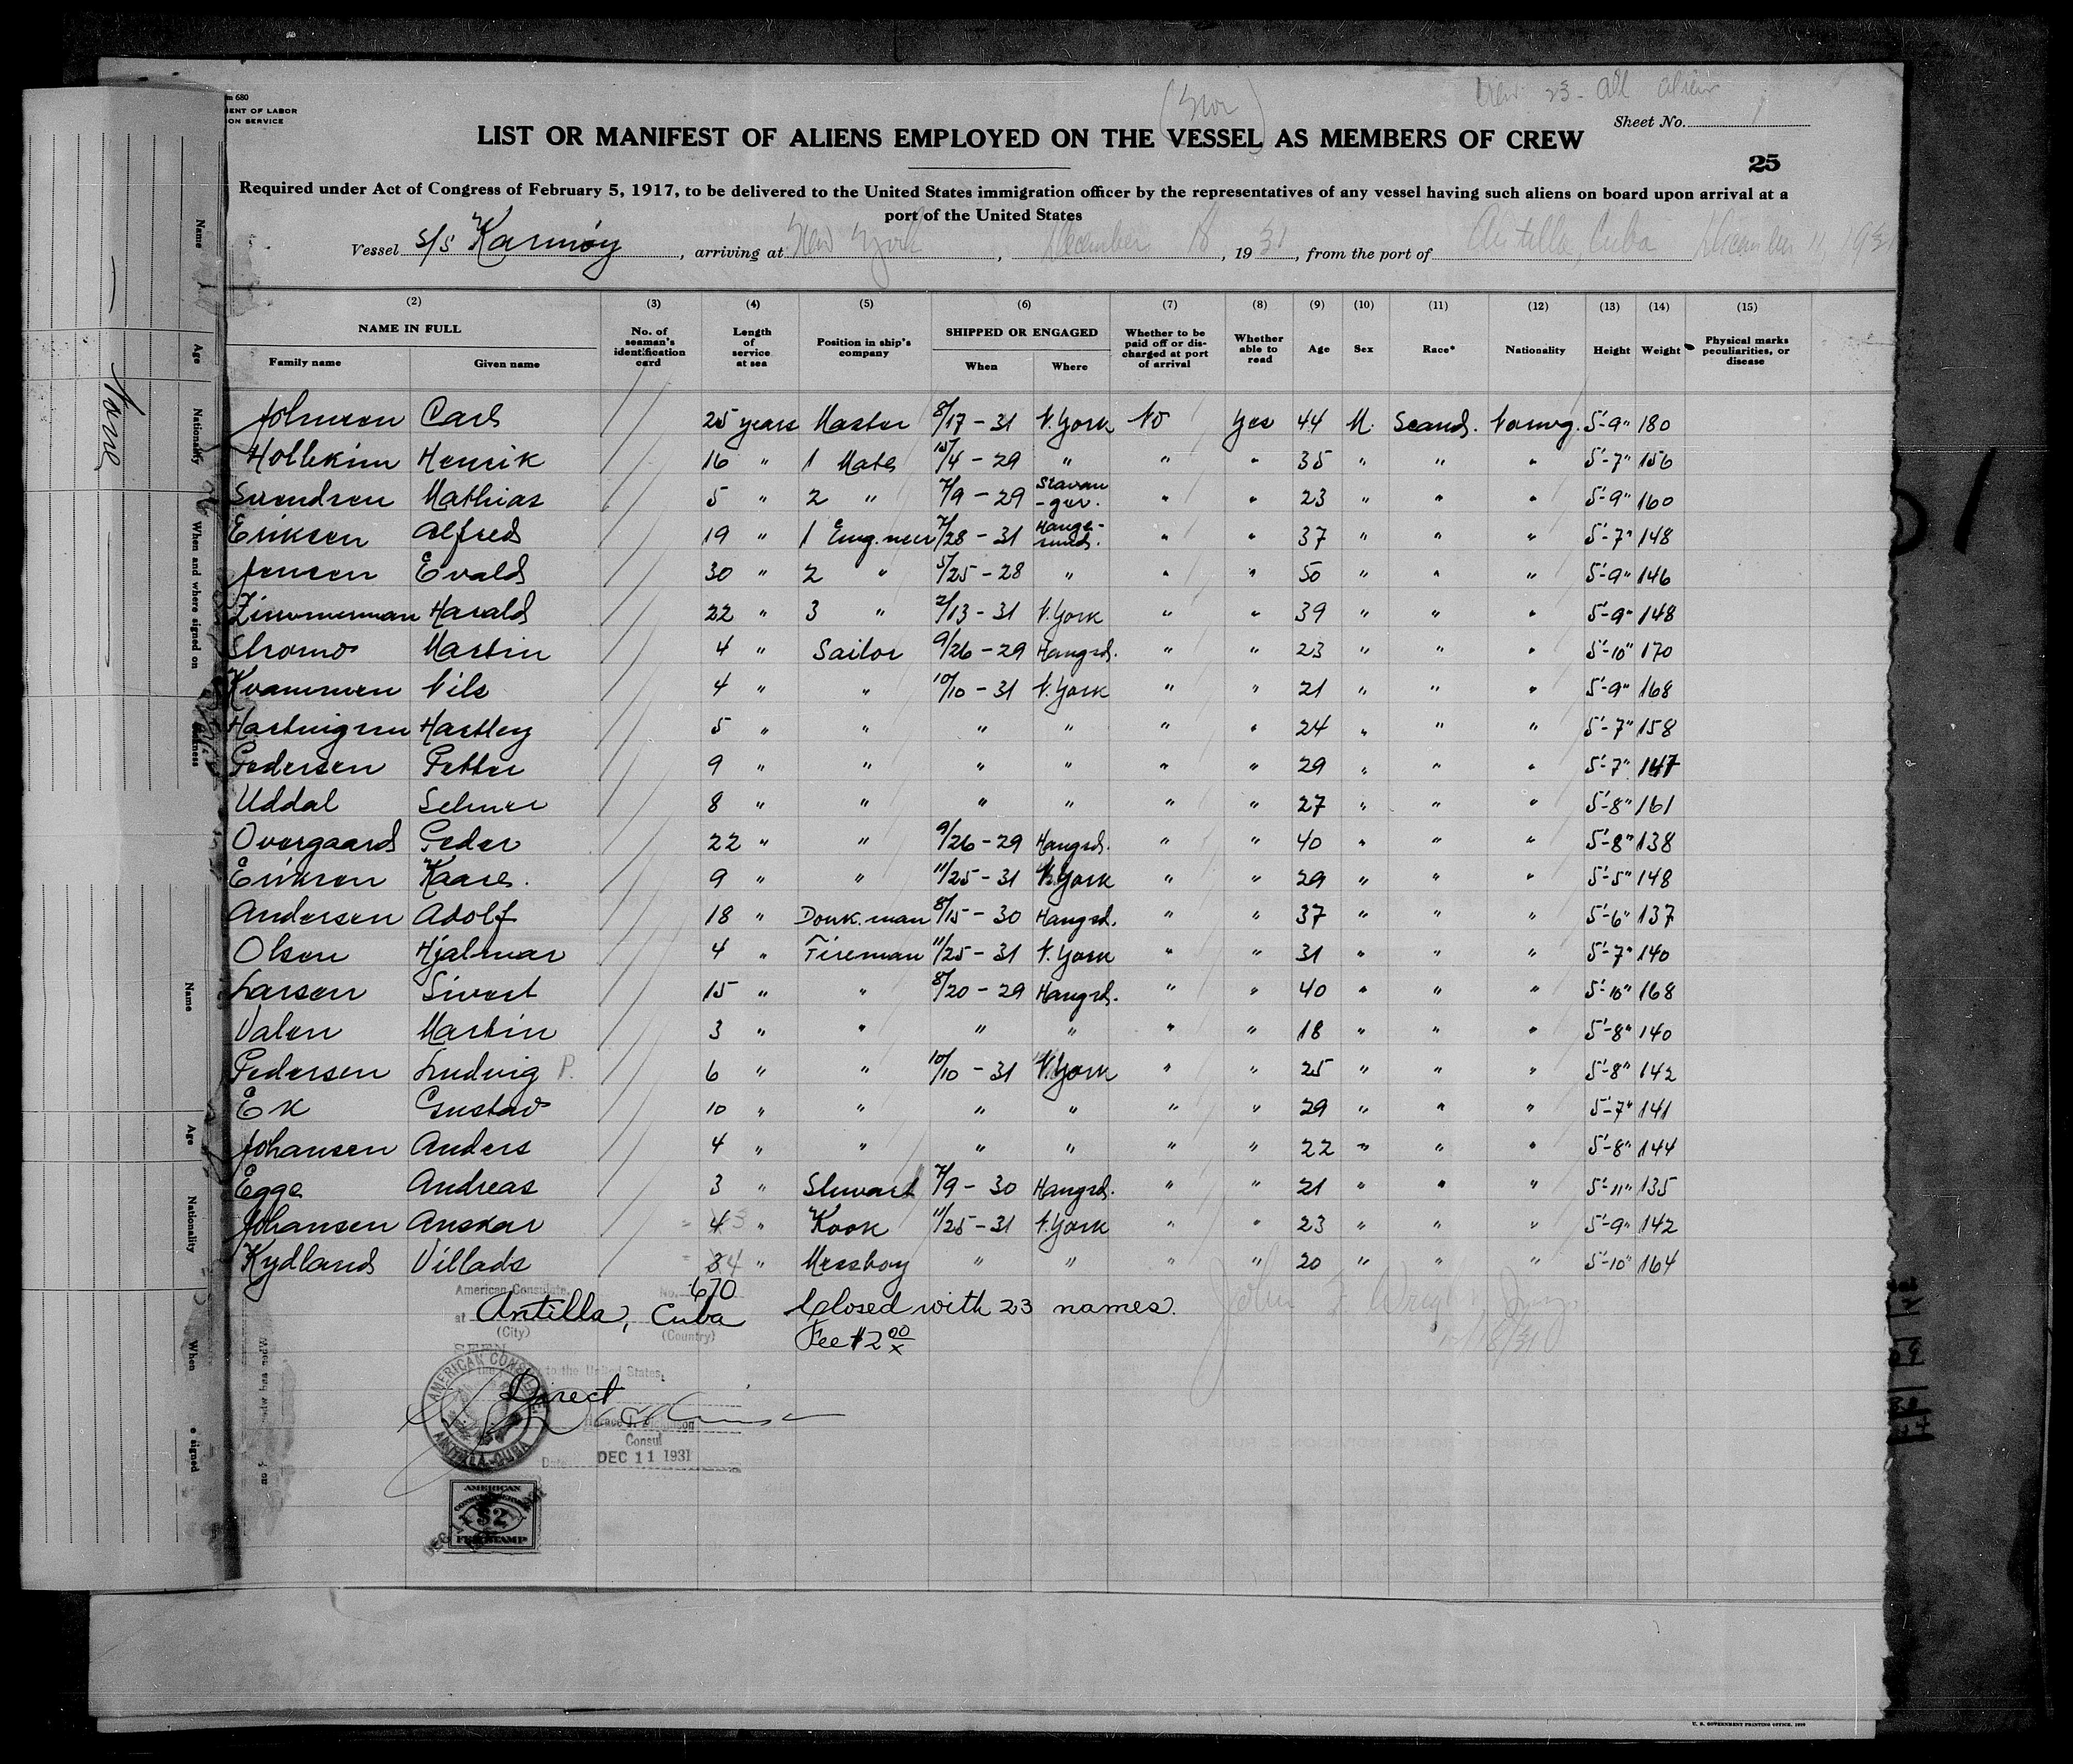 m 680
MENT OF LABOR
ON SERVICE
(Nor)
Crew 23 - All alien
Sheet No. 1
LIST OR MANIFEST OF ALIENS EMPLOYED ON THE VESSEL AS MEMBERS OF CREW
25
Required under Act of Congress of February 5, 1917, to be delivered to the United States immigration officer by the representatives of any vessel having such aliens on board upon arrival at a
port of the United States
Vessel S/S Karmöy, arriving at New York, December 18, 1931, from the port of Antilla, Cuba December 11, 1931
(2) (3) (4) (5) (6) (7) (8) (9) (10) (11) (12) (13) (14) (15)
NAME IN FULL Family name Given name No. of seaman's identification card Length of service at sea Position in ship's company SHIPPED OR ENGAGED When Where Whether to be paid off or discharged at port of arrival Whether able to read Age Sex Race* Nationality Height Weight Physical marks peculiarities, or disease
Johnsen Carl 25 years Master 8/17 - 31 N. York No Yes 44 M. Scand. Norwg. 5'-9" 180
Hollekim Henrik 16 " 1 Mate /4 - 29 " " " 35 " " " 5'-7" 156
Svendsen Mathias 5 " 2 " 7/9 - 29 Stavan-ger. " " 23 " " " 5'-9" 160
Eriksen Alfred 19 " 1 Eng.neer 7/28 - 31 Hauge-sund. " " 37 " " " 5'-7" 148
Jensen Evald 30 " 2 " 5/25 - 28 " " " 50 " " " 5'-9" 146
Zimmerman Harald 22 " 3 " 2/13 - 31 N. York " " 39 " " " 5'-9" 148
Stromo Martin 4 " Sailor 9/26 - 29 Haugsd. " " 23 " " " 5'-10" 170
Kvammen Nils 4 " " 10/10 - 31 N. York " " 21 " " " 5'-9" 168
Hartvigsen Hartley 5 " " " " " " 24 " " " 5'-7" 158
Pedersen Petter 9 " " " " " " 29 " " " 5'-7" 147
Uddal Selmer 8 " " " " " " 27 " " " 5'-8" 161
Overgaard Peder 22 " " 9/26 - 29 Haugsd. " " 40 " " " 5'-8" 138
Eriksen Kaare. 9 " " 11/25 - 31 N. York " " 29 " " " 5'-5" 148
Andersen Adolf 18 " Donk.man 8/15 - 30 Haugsd. " " 37 " " " 5'-6" 137
Olsen Hjalmar 4 " Fireman 11/25 - 31 N. York " " 31 " " " 5'-7" 140
Larsen Sivert 15 " " 8/20 - 29 Haugsd. " " 40 " " " 5'-10" 168
Valen Martin 3 " " " " " " 18 " " " 5'-8" 140
Pedersen Ludvig P. 6 " " 10/10 - 31 N. York " " 25 " " " 5'-8" 142
Ek Gustav 10 " " " " " " 29 " " " 5'-7" 141
Johansen Anders 4 " " " " " " 22 " " " 5'-8" 144
Egge Andreas 3 " Stuvart 7/9 - 30 Haugsd. " " 21 " " " 5'-11" 135
Johansen Anskar 4 5 " Kook 11/25 - 31 N. York " " 23 " " " 5'-9" 142
Kydland Villads 3 4 " Messboy " " " " 20 " " " 5'-10" 164
American Consulate, No. 670
at Antilla, Cuba Closed with 23 names.
(City) (Country) Fee $2 00/x
John F. Wright, Insp.
12/18/31
SEEN
to the United States,
Direct
AMERICAN CONSULATE
ANTILLA-CUBA
Consul
Date DEC 11 1931
AMERICAN
CONSULAR SERVICE
$2
FEE STAMP
Name
Age
Nationality
When and where signed on
None
Name
Age
Nationality
When
e signed
U. S. GOVERNMENT PRINTING OFFICE